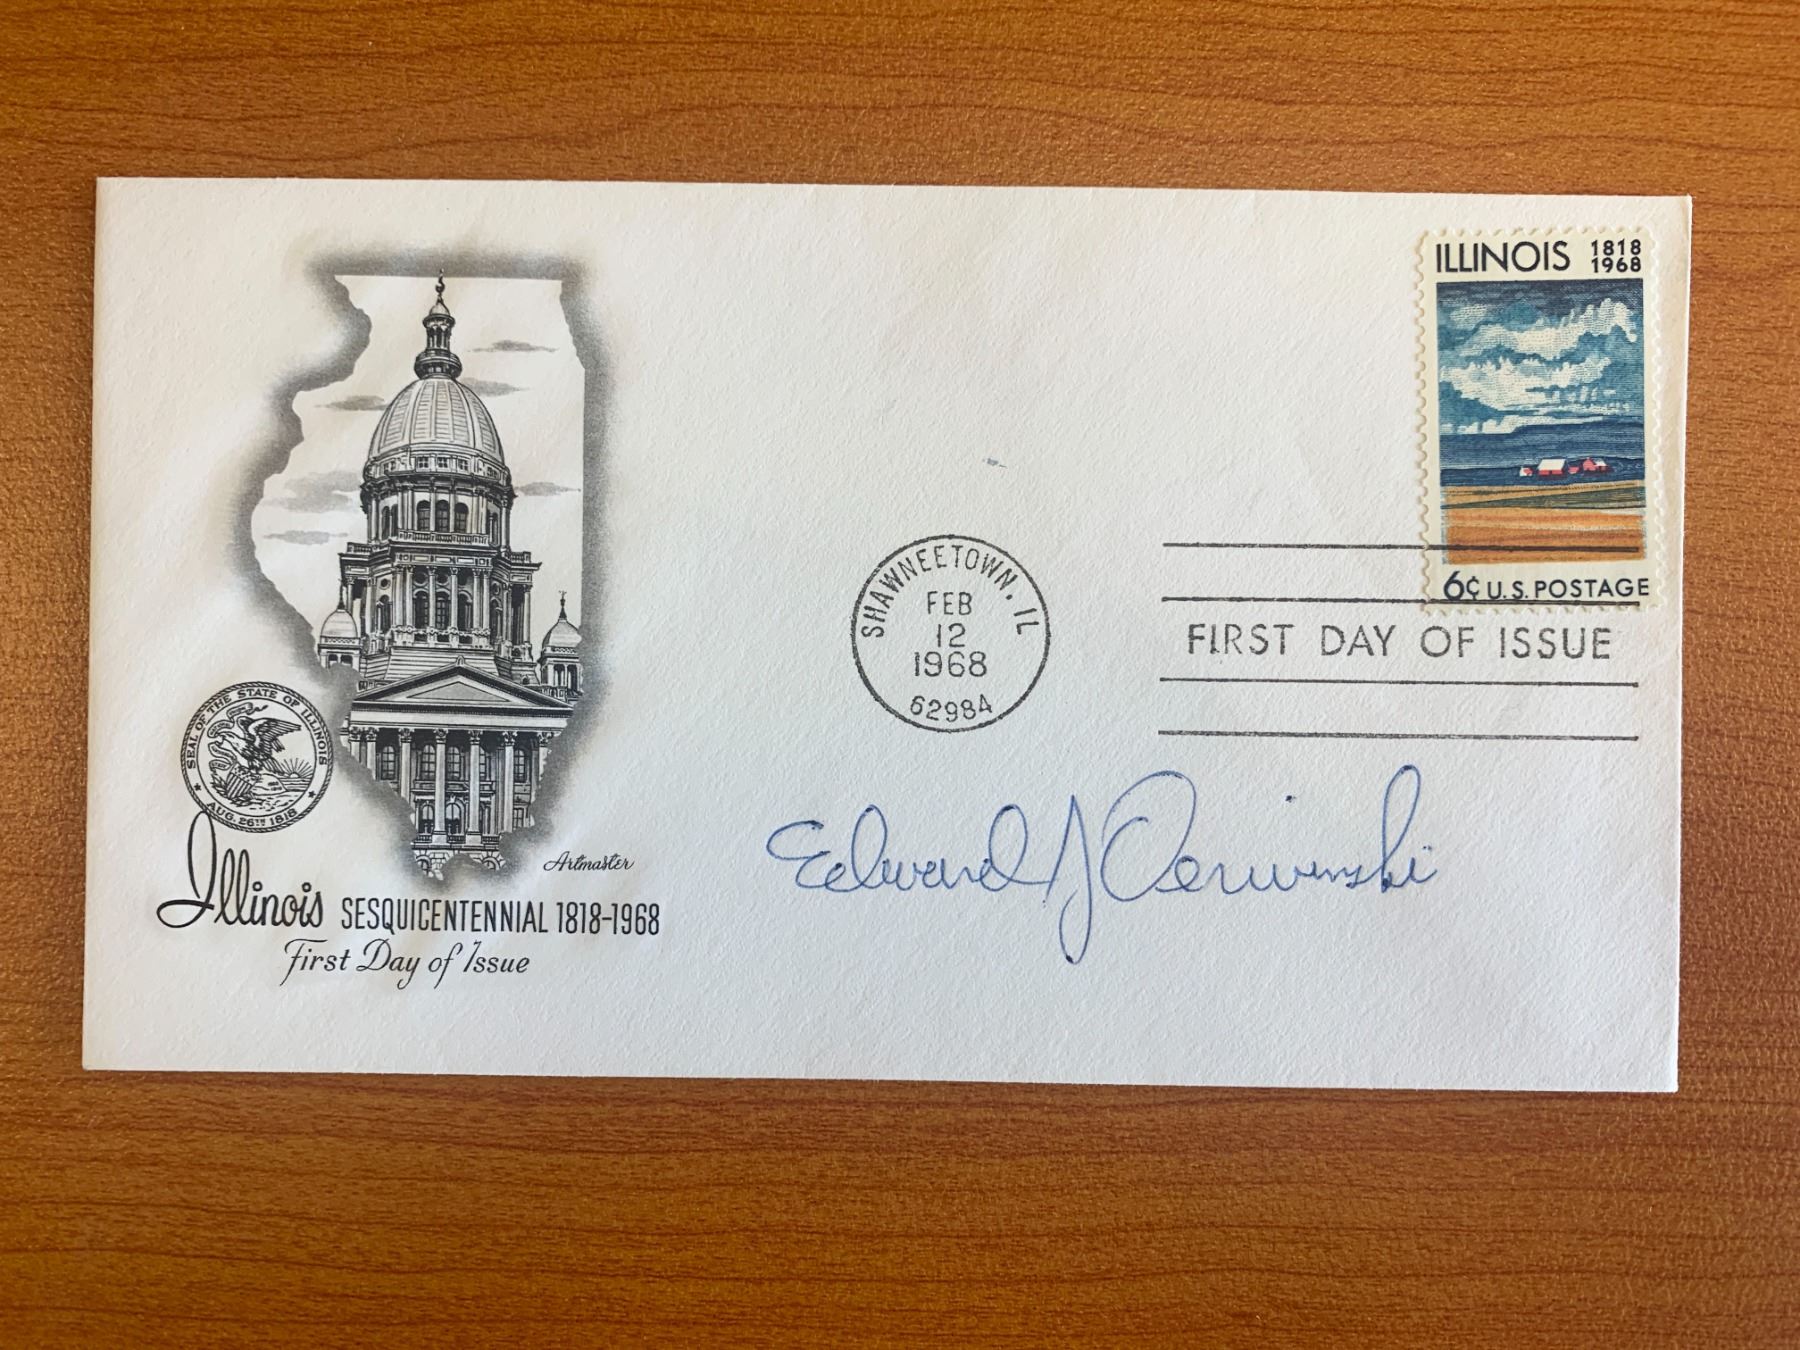 ILLINOIS 1818
1968
6¢ U.S. POSTAGE
SHAWNEETOWN, IL
FEB
12
1968
62984
FIRST DAY OF ISSUE
SEAL OF THE STATE OF ILLINOIS
AUG. 26TH 1818
Artmaster
Illinois SESQUICENTENNIAL 1818-1968
First Day of Issue
Edward J Derwinski